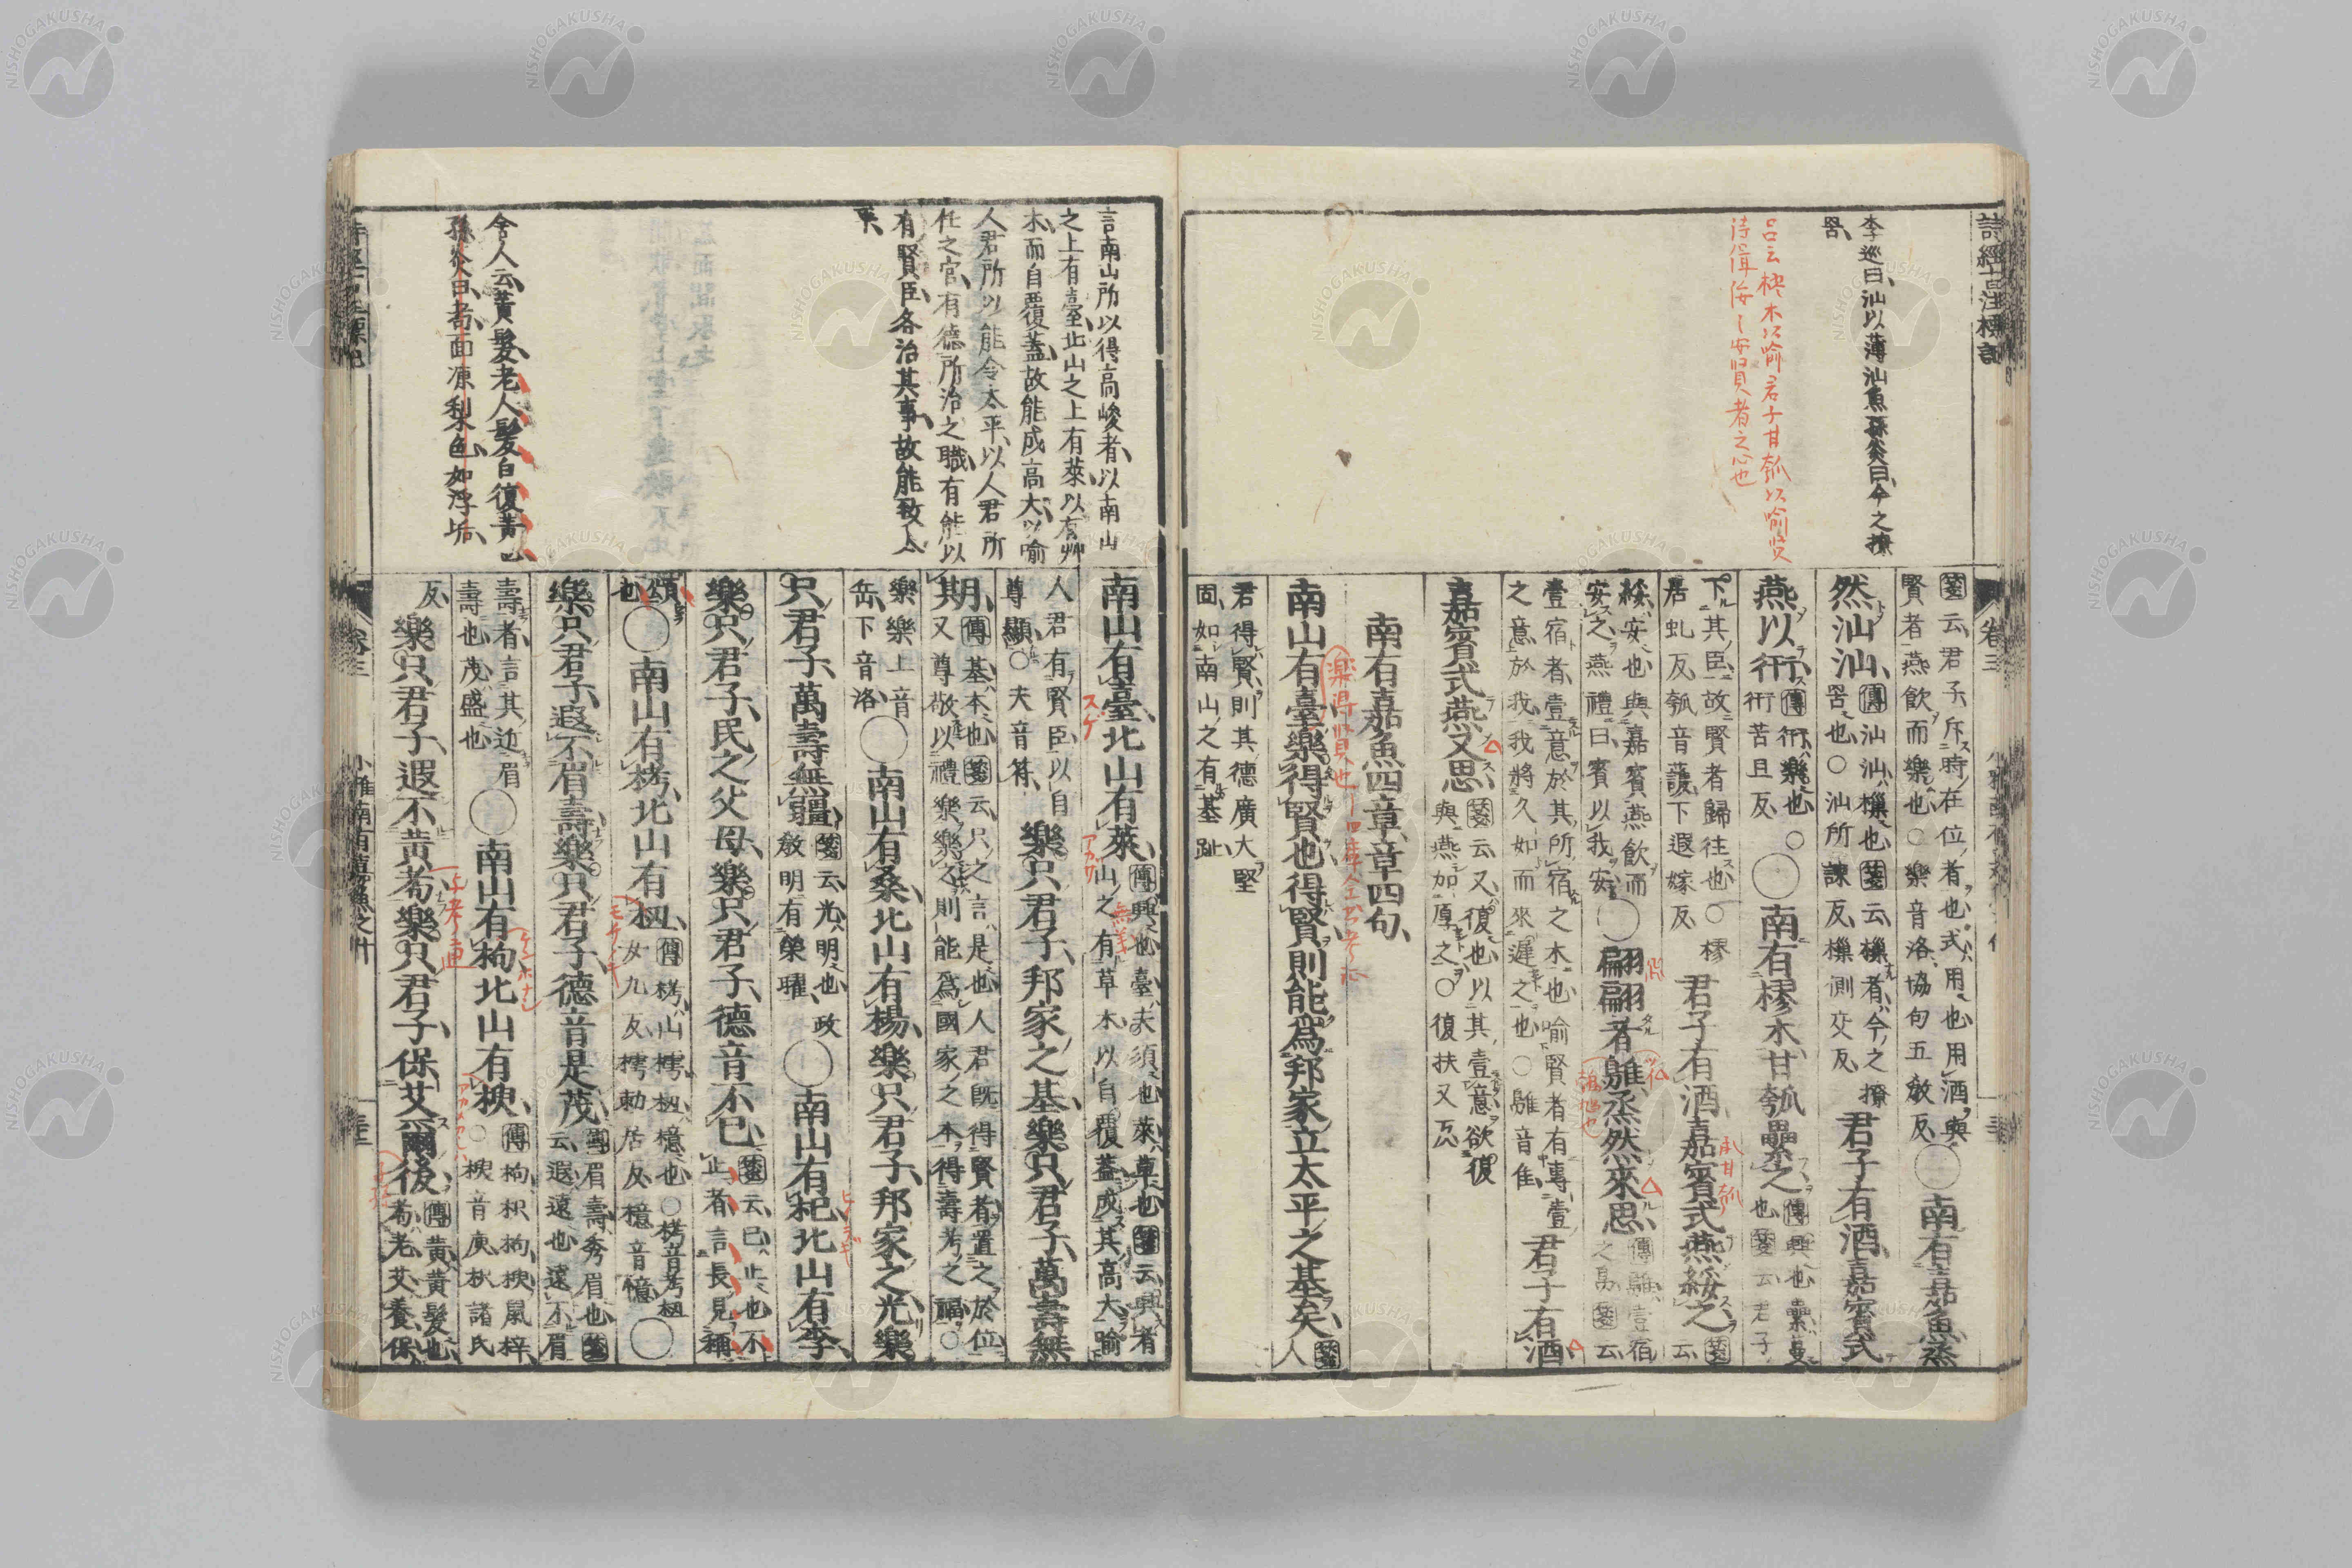 詩經古注標記
李巡曰汕以薄汕魚孫炎曰今之撩
罟
呂云樛木以喻君子甘瓠以喻賢
綏之安賢者之心也
箋云君子斥時在位者也式用也用酒與
賢者燕飲而樂也○樂音洛協句五敎反○南有嘉魚烝
然汕汕傳汕汕樔也箋云樔者今之撩
罟也○汕所諫反樔側交反君子有酒嘉賓式
燕以衎傳衎樂也○
衎苦旦反○南有樛木甘瓠纍之傳興也纍蔓
也箋云君子
下其臣故賢者歸往也○樛
居虬反瓠音護下遐嫁反君子有酒嘉賓式燕綏之箋
云
綏安也與嘉賓燕飮而
安之燕禮曰賓以我安○翩翩者鵻烝然來思傳鵻壹宿
之鳥箋云
壹宿者壹意於其所宿之木也喻賢者有專壹
之意於我我將久如而來遲之也○鵻音隹君子有酒
嘉賓式燕又思箋云又復也以其壹意欲復
與燕加厚之○復扶又反
南有嘉魚四章章四句
南山有臺樂得賢也得賢則能爲邦家立太平之基矣箋
人
君得賢則其德廣大堅
固如南山之有基趾
卷三
言南山所以得高峻者以南山
之上有臺北山之上有萊以有艸
木而自覆蓋故能成高大以喻
人君所以能令太平以人君所
任之官有德所治之職有能以
有賢臣各治其事故能致太
平
舍人云黃髮老人髮白復黃也
孫炎曰耇面凍梨色如浮垢
南山有臺北山有萊傳興也臺夫須也萊草也箋云興者
山之有草木以自覆蓋成其高大喻
人君有賢臣以自
尊顯○夫音符樂只君子邦家之基樂只君子萬壽無
期傳基本也箋云只之言是也人君旣得賢者置之於位
又尊敬以禮樂樂之則能爲國家之本得壽考之福○
樂樂上音
岳下音洛○南山有桑北山有楊樂只君子邦家之光樂
只君子萬壽無疆箋云光明也政
敎明有榮曜○南山有杞北山有李
樂只君子民之父母樂只君子德音不已箋云已止也不
止者言長見稱
頌
也○南山有栲北山有杻傳栲山樗杻檍也○栲音考杻
女九反樗勅居反檍音憶○
樂只君子遐不眉壽樂只君子德音是茂傳眉壽秀眉也箋
云遐遠也遠不眉
壽者言其近眉
壽也茂盛也○南山有枸北山有楰傳枸枳枸楰鼠梓
○楰音庾枳諸氏
反樂只君子遐不黃耇樂只君子保艾爾後傳黃黃髮也
耇老艾養保
卷三
小雅南有嘉魚之什